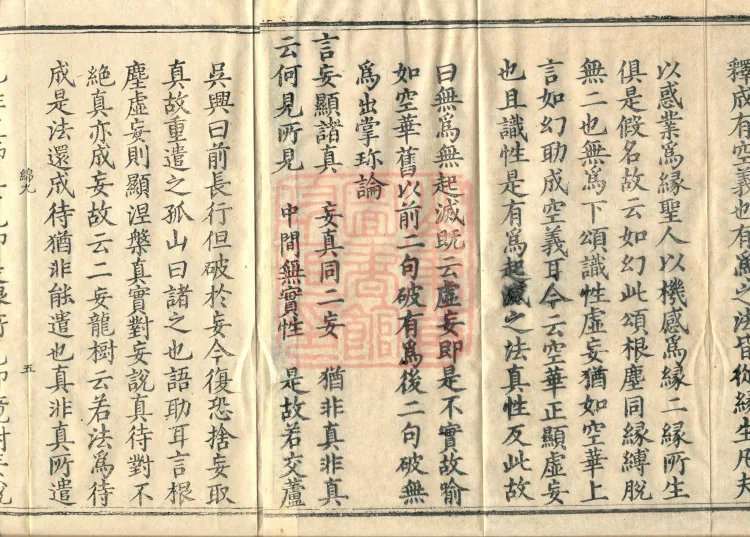 釋成有空義也有爲之法皆從緣生凡夫
以惑業爲緣聖人以機感爲緣二緣所生
俱是假名故云如幻此頌根塵同緣縛脫
無二也無爲下頌識性虛妄猶如空華上
言如幻助成空義耳今云空華正顯虛妄
也且識性是有爲起滅之法真性反此故
曰無爲無起滅旣云虛妄即是不實故喻
如空華舊以前二句破有爲後二句破無
爲出掌珎論
言妄顯諸真 妄真同二妄 猶非真非真
云何見所見 中間無實性 是故若交蘆
吳興曰前長行但破於妄今復恐捨妄取
真故重遣之孤山曰諸之也語助耳言根
塵虛妄則顯涅槃真實對妄說真待對不
絕真亦成妄故云二妄龍樹云若法爲待
成是法還成待猶非能遣也真非真所遣
綿九 五